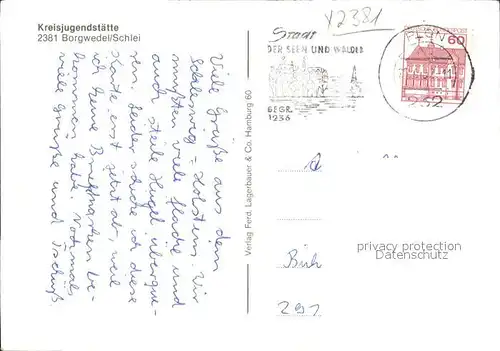 Kreisjugendstätte
2381 Borgwedel/Schlei
Viele Grüße aus dem
Schleswig-Holstein. Wir
mußten viele flache und
auch steile Hügel überque-
ren. Leider schicke ich diese
Karte erst jetzt ab, weil
ich keine Briefmarken be-
kommen habe. Nochmals
viele Grüße und Tschüß.
Verlag Ferd. Lagerbauer & Co. Hamburg 60
X2381
Stadt
DER SEEN UND WÄLDER
GEGR.
1236
PLÖN
232
60
privacy protection
Datenschutz
Büh
291